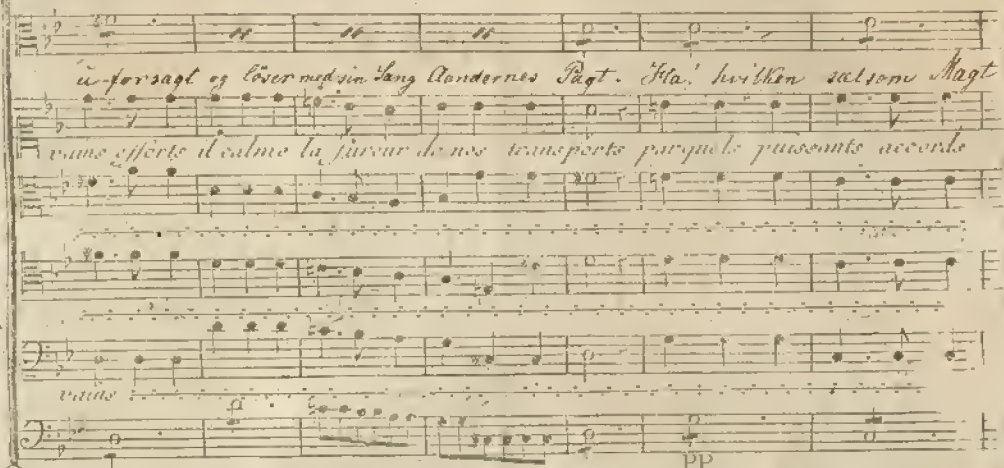 u-forsagt og löser med sin Sang Aandernes Pagt. Ha! hvilken sælsom Magt
vains efforts il calme la fureur de nos transports par quels puissants accords
vains
PP